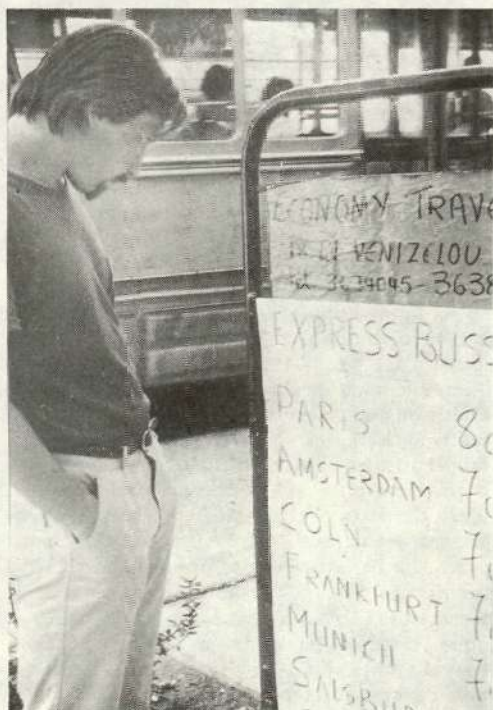 ECONOMY TRAVE
EL VENIZELOU
tel. 3634045-3638
EXPRESS BUSS
PARIS 80
AMSTERDAM 70
COLN 70
FRANKFURT 7
MUNICH 7
SALSBU